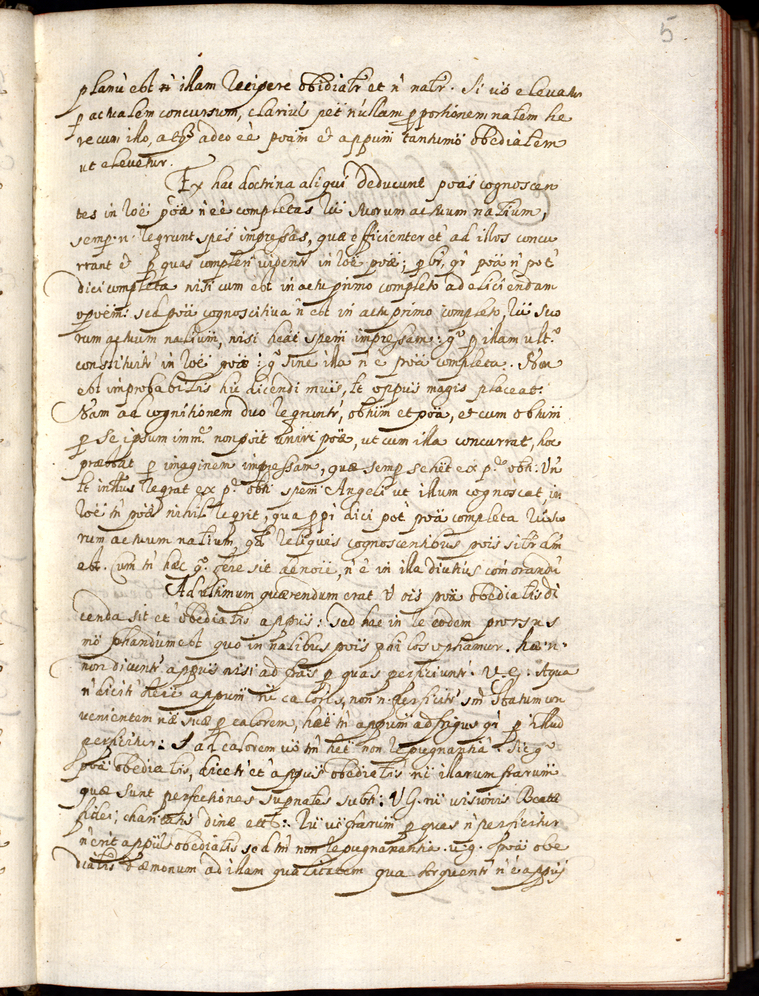 5
planũ est ñ illam recipere obidiàłr et ñ natłr. Si uö eleuatur
p actualem concursum, clariùs pet nullam pportionem natem he
re cum illo, atq3 adeo eè poam et appum tantumö obedialem
ut eleuetur.
Ex hac doctrina aliqui deducunt poas cognoscen
tes in röe poä n eè completas rü suorum actuum natium,
semp .n. regrunt spes impressas, quæ efficienter et ad illos concu
rrant et p quas complentur uipentr in röe poæ; pbr, qi poä ñ pot
dici completa nisi cum est in actu primo completo ad eliciendam
opoem: sed poä cognoscitiua ñ est in actu primo completo rü suo
rum actuum natium, nisi heat spem impressam: qa p illam ult.o
constituitr in röe poæ: go sine illa ñ è poä completa. Non
est improbabilis hic dicendi mus, lt oppus magis placeat.
Nam ad cognitionem duo regruntr, obtum et poä, et cum obtum
p se ipsum imm.e non psit uniri poæ, ut cum illa concurrat, hoc
præstat p imaginem impressam, quæ semp se hét ex p.e obti. Un
lt intllus regrat ex p.e obti spem Angeli ut illum cognoscat, in
röe tn poæ nihil regrit, qua ppi dici pot poä completa rü suo
rum actuum natium, qd reliquis cognoscentibus pois sitr dm
est. Cum tn hæc qo fere sit de noie, ñ è in illa diutius comorandũ
Ad ultimum quærendum erat ù ois poä obedialis di
cenda sit et obedialis appus: sed hac in re eodem prorsus
mö phandum est quo in natibus pois philosophamur. hæ .n.
non dicuntr appus nisi ad fras p quas perficiuntr. V.G. Aqua
ñ dicitr here appum rü caloris, non .n. perficitr sm statum con
uenientem næ suæ p calorem, hét tn appum ad frigus qi p illud
perficitur. Ad calorem uö tm hét non repugnantiã. Sic go
poä obedialis, dicetr et appus obedialis rü illarum frarum
quæ sunt perfectiones supnates subti. V.G. rü uisionis Beatæ
fidei, charitatis diuinæ etc.: rü uö frarum p quas ñ perficitur
ñ erit appus obedialis sed tm non repugnantia. v.g. poä obe
dialis dæmonum ad illam qualitatem qua torquentr ñ è appus